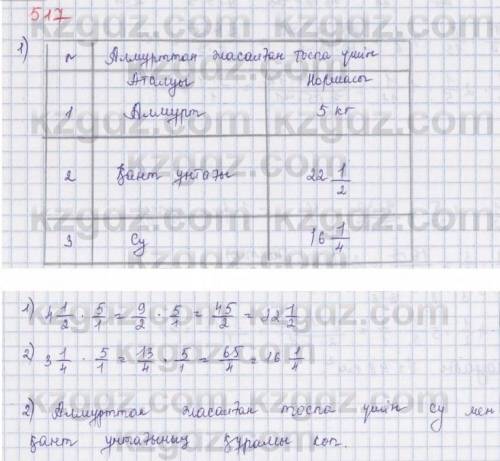 517
1)
№ Алмұрттан жасалған тоспа үшін
Аталуы Нормасы
1 Алмұрт 5 кг
2 Қант ұнтағы 22 1/2
3 Су 16 1/4
1) 4 1/2 · 5/1 = 9/2 · 5/1 = 45/2 = 22 1/2
2) 3 1/4 · 5/1 = 13/4 · 5/1 = 65/4 = 16 1/4
2) Алмұрттан жасалған тоспа үшін су мен
қант ұнтағының құрамы көп.
kzgdz.com